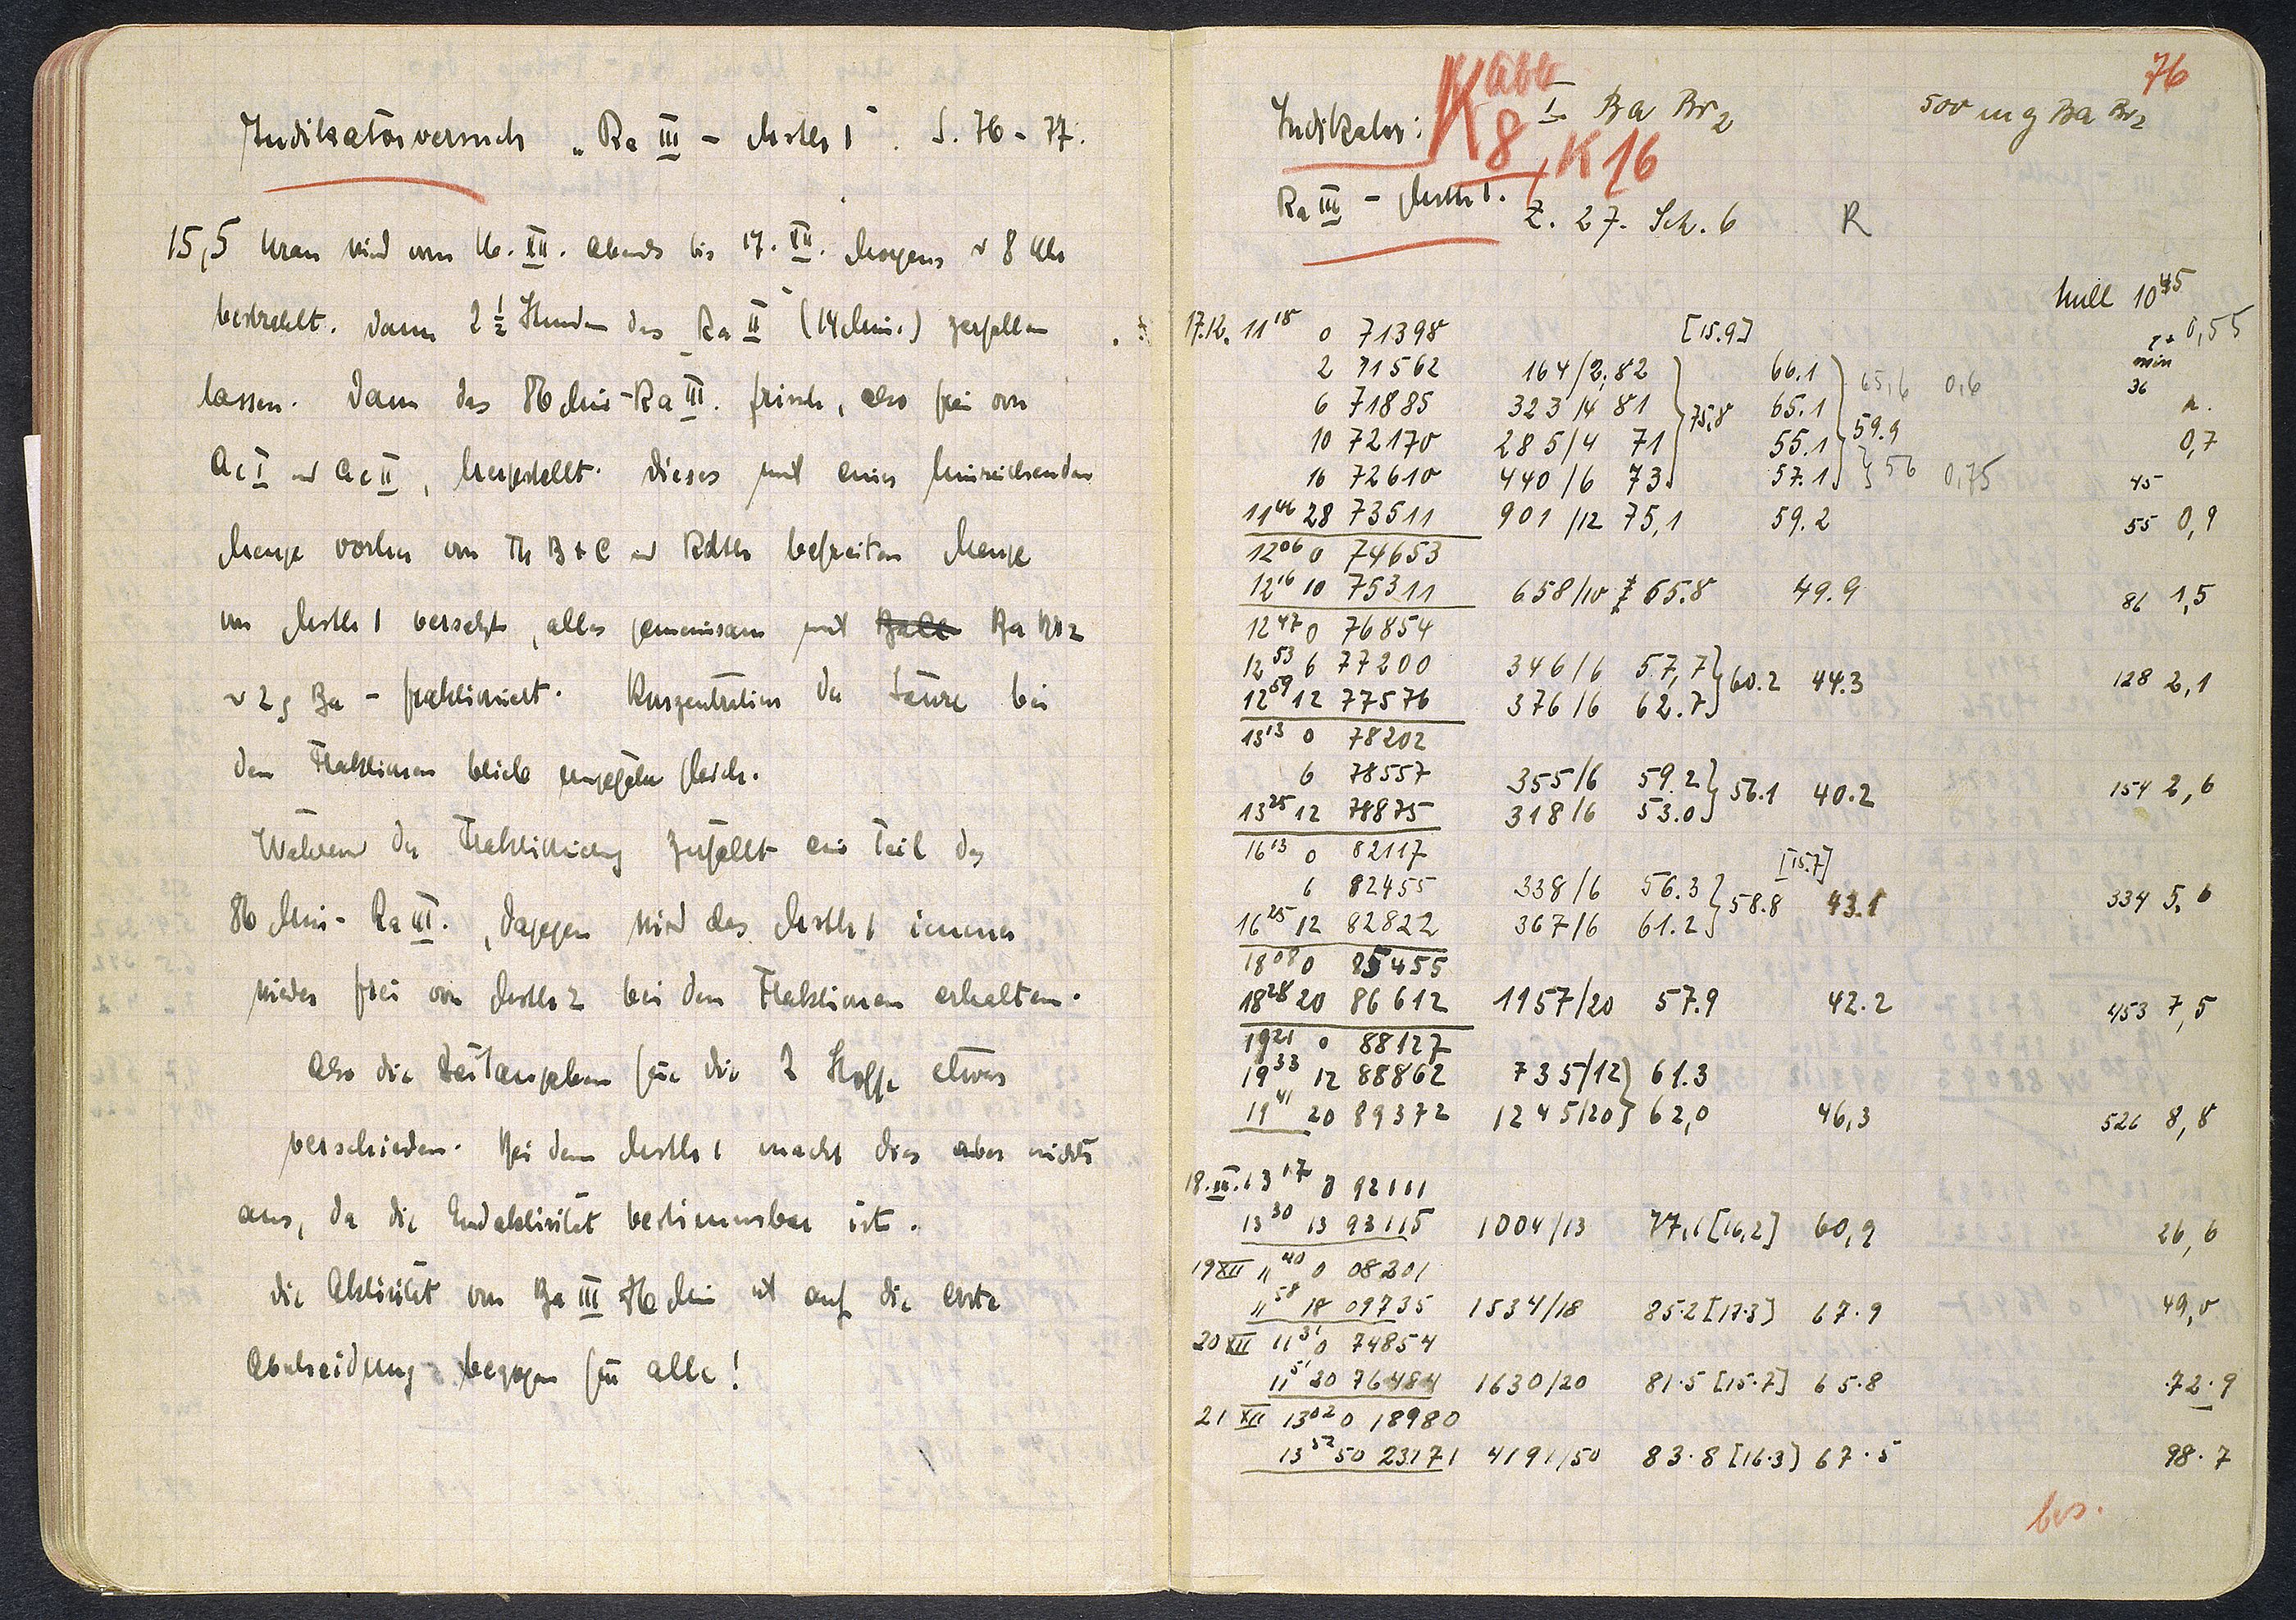 Indikatorversuch „Ra III – Msth 1". S. 76 – 77.
15,5 Uran wird vom 16. XII. abends bis 17. XII. morgens ~ 8 Uhr
bestrahlt. Dann 2 ½ Stunden das Ra II (14 Min.) zerfallen
lassen. Dann das 86 Min - Ra III. frisch, also frei von
Ac I und Ac II, hergestellt. Dieses mit einer hinreichenden
Menge vorher von Th B + C und Rdth befreiten Menge
von Msth 1 versetzt, alles gemeinsam mit Ba Br2
~ 2 g Ba – fraktioniert. Konzentration der Säure bei
den Fraktionen blieb ungefähr gleich.
Während der Fraktionierung zerfällt ein Teil des
86 Min - Ra III., dagegen wird das Msth 1 immer
wieder frei von Msth 2 bei den Fraktionen erhalten.
Also die Zeitangaben für die 2 Stoffe etwas
verschieden. Bei dem Msth 1 macht dies aber nichts
aus, da die Endaktivität bestimmbar ist.
Die Aktivität von Ra III 86 Min ist auf die erste
Abscheidung bezogen für alle!
76
Indikator: I. Ba Br2 500 mg Ba Br2
K 8, K 16
Ra III – Msth 1. Z. 27. Sch. 6 R
Null 10 45
17.12. 11 18 0 71398 [15.9] 0,55
min
2 71562 164/2 82 66.1 65,6 0,6 36
6 71885 323/4 81 75,8 65.1
10 72170 285/4 71 55.1 59.9 0,7
16 72610 440/6 73 57.1 56 0,75 45
11 46 28 73511 901/12 75,1 59.2 55 0,9
12 06 0 74653
12 16 10 75311 658/10 65.8 49.9 86 1,5
12 47 0 76854
12 53 6 77200 346/6 57,7 60.2 44.3 128 2,1
12 59 12 77576 376/6 62.7
13 13 0 78202
6 78557 355/6 59.2 56.1 40.2 154 2,6
13 25 12 78875 318/6 53.0
16 13 0 82117 [15.7]
6 82455 338/6 56.3 58.8 43.1 334 5,6
16 25 12 82822 367/6 61.2
18 08 0 85455
18 28 20 86612 1157/20 57.9 42.2 453 7,5
19 21 0 88127
19 33 12 88862 735/12 61.3
19 41 20 89372 1245/20 62,0 46,3 526 8,8
18. XII. 13 17 0 92111
13 30 13 93115 1004/13 77,1 [16,2] 60,9 26,6
19 XII 11 40 0 08201
11 58 18 09735 1534/18 85.2 [17.3] 67.9 49,0
20 XII 11 31 0 74854
11 51 20 76484 1630/20 81.5 [15.7] 65.8 72.9
21 XII 13 02 0 18980
13 52 50 23171 4191/50 83.8 [16.3] 67.5 98.7
bes.